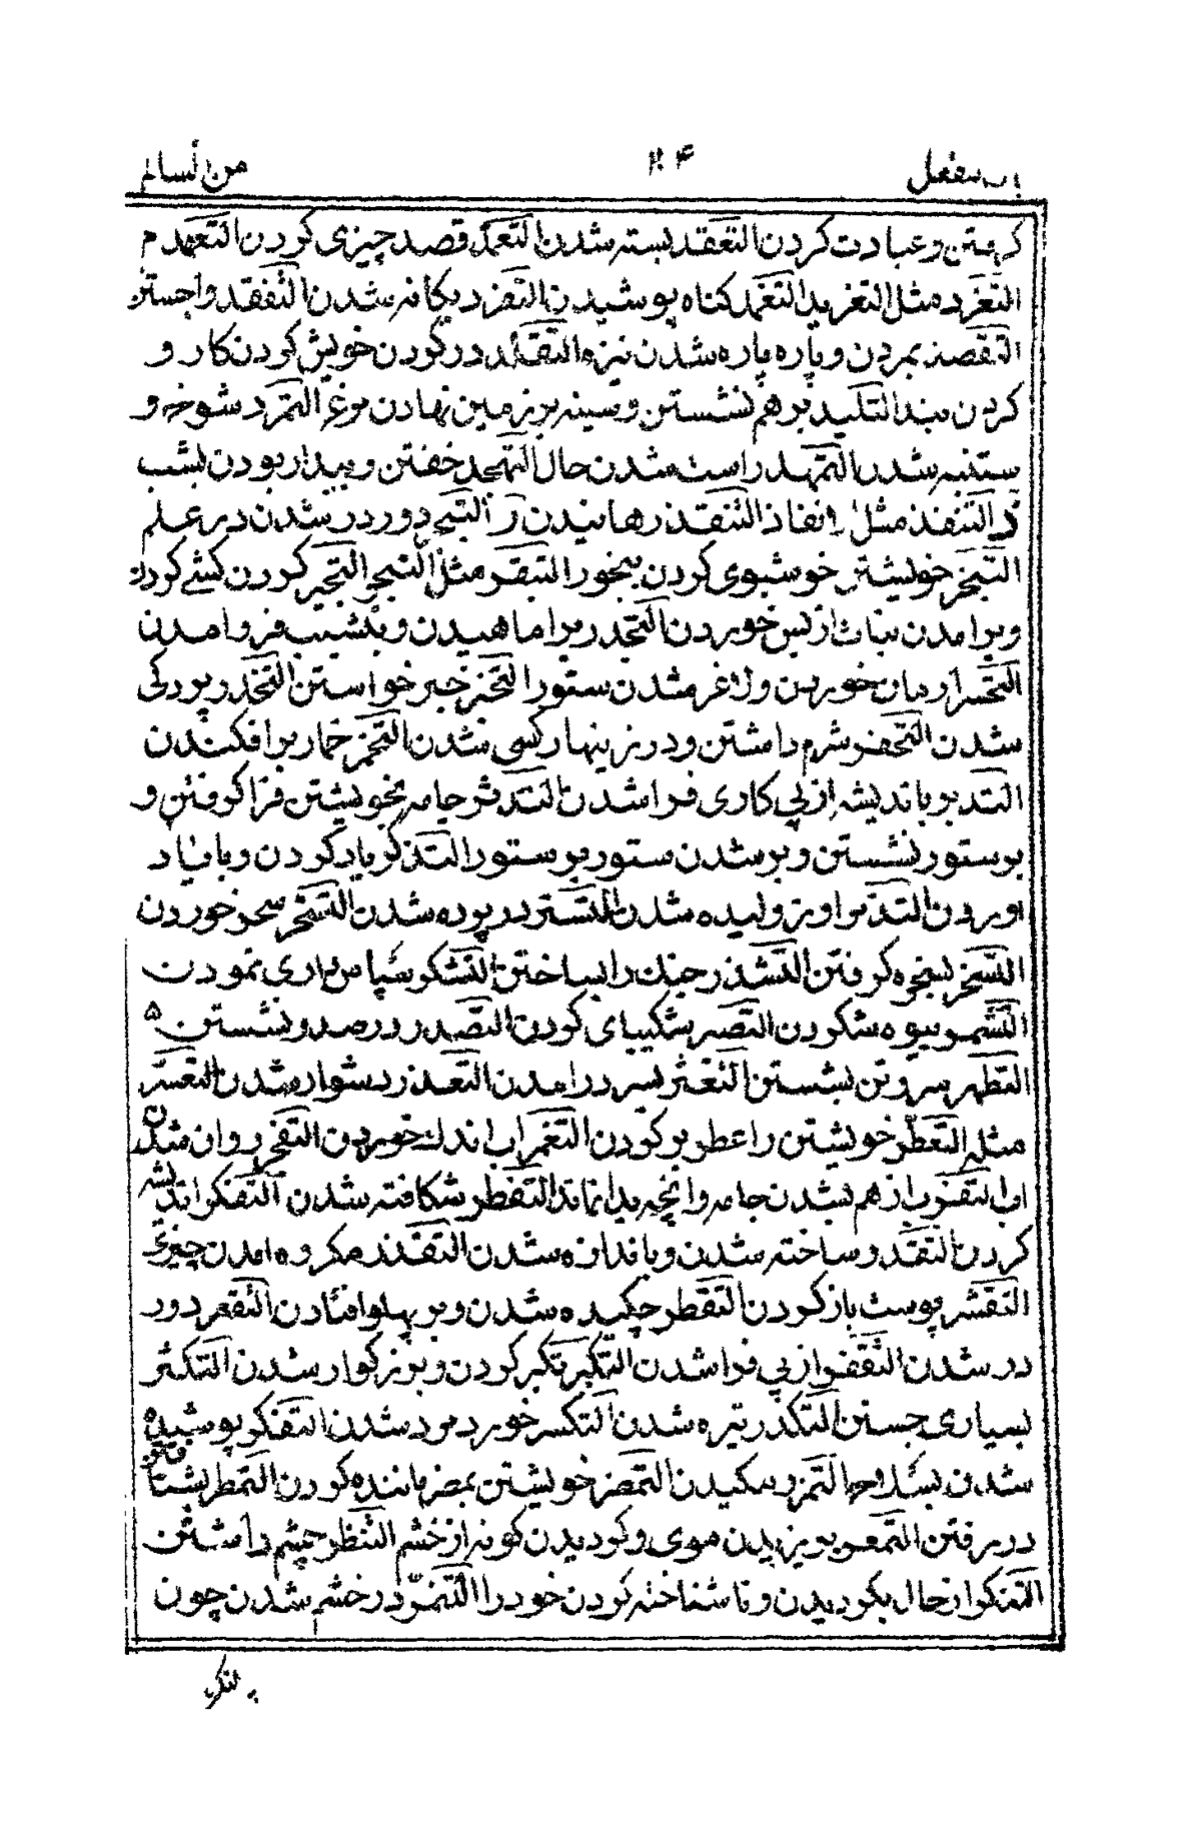 باب تفعل ٢٠۴ من السالم
کرفتن و عبادت کردن التعقد بسته شدن التعمد قصد چیزی کردن التعهد م
التغرد مثل التغرید التغمد کناه پوشیدن التفرد یکانه شدن التفقد واجستن
التقصد بمردن و پاره پاره شدن نیزه التقلد در کردن خویش کردن کار و
کردن بند التلبد برهم نشستن و سینه بر زمین نهادن مرغ التمرد شوخ و
ستنبه شدن التمهد راست شدن حال التهجد خفتن و بیدار بودن بشب
ذ التنفذ مثل انفاذ التنقذ رهانیدن ر التبحر دور در شدن در علم
التبخر خویشتن خوشبوی کردن ببخور التبقر مثل التبحر التجبر کردن کشی کردن
و برامدن نبات از پس خوردن التحدر برا ماهیدن و بنشیب فرو امدن
التحسر ارمان خوردن و لاغر شدن ستور التخبر خبر خواستن التخدر پردکی
شدن التخفر شرم داشتن و در زینهار کسی شدن التخمر خمار برافکندن
التدبر باندیشه از پی کاری فرا شدن التدثر جامه بخویشتن فرا کرفتن و
بر ستور نشستن و بر شدن ستور بر ستور التذکر یاد کردن و بایاد
اوردن التذمر اوز ولیده شدن التستر در پرده شدن التسحر سحور خوردن
التسخر بسخره کرفتن التشذر جنك را بساختن التشکر سپاس داری نمودن
التشمر بیوه شکردن التصبر شکیبای کردن التصدر در صدر نشستن
التطهر سر و تن بشستن التعثر بسر در امدن التعذر دشوار شدن التعسر
مثله التعطر خویشتن را عطر بر کردن التغمر اب اندك خوردن التفجر روان شدن
اب التفزر از هم بشدن جامه وانچه بدان ماند التفطر شکافته شدن التفکر اندیشه
کردن التقدر ساخته شدن و باندازه شدن التقذر مکروه امدن چیزی
التقشر پوست باز کردن التقطر چکیده شدن و بر پهلو افتادن التقعر دور
در شدن التقفر از پی فرا شدن التکبر تکبر کردن و بزرکوار شدن التکثر
بسیاری جستن التکدر تیره شدن التکسر خورد مرد شدن التفکر پوشیده
شدن بسلاح التمزر مکیدن التمضر خویشتن بمضر ماننده کردن التمطر بشتاب
در رفتن التمعر بریزیدن موی و کردیدن کونه از خشم التنظر چشم داشتن
التنکر از حال بکردیدن و نا شناخته کردن خود را التنمر در خشم شدن چون